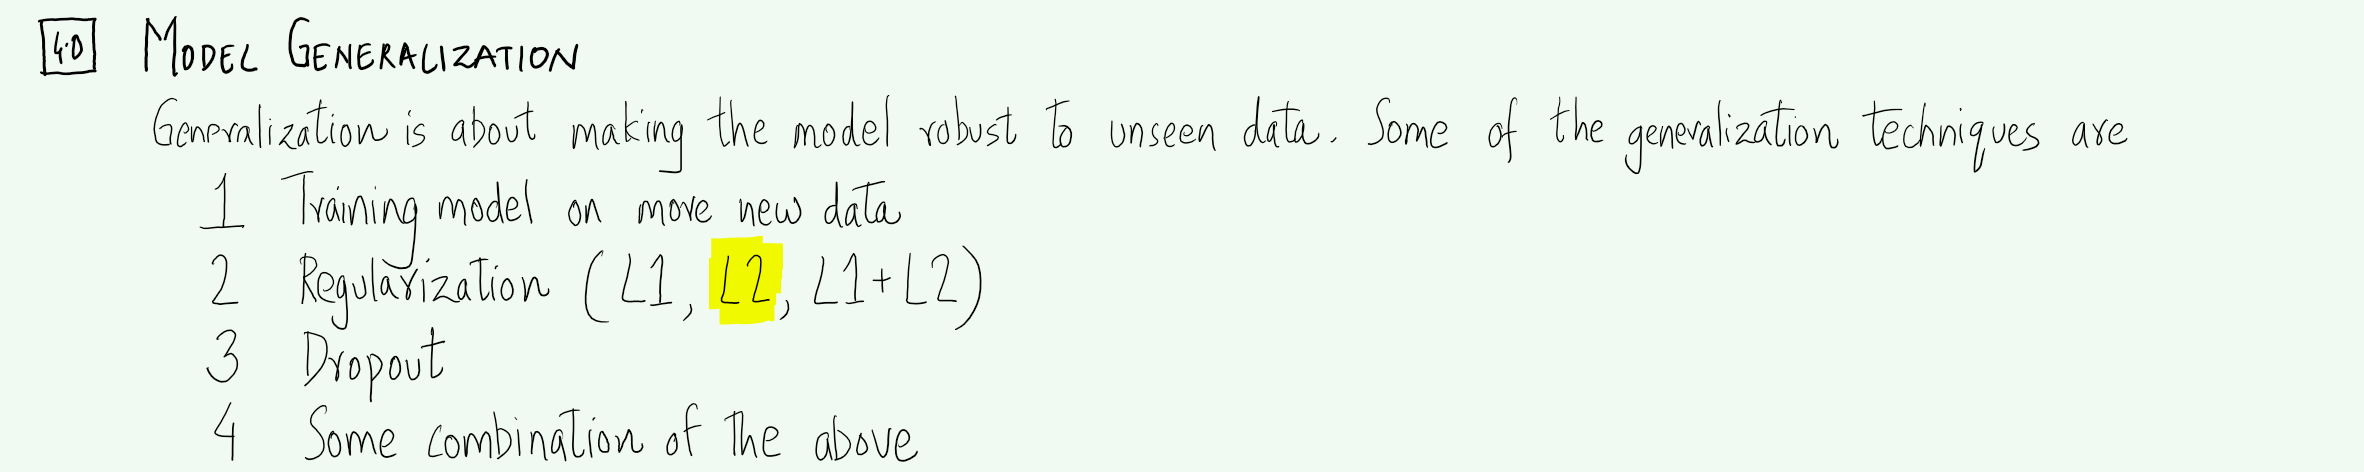 4.0 MODEL GENERALIZATION
Generalization is about making the model robust to unseen data. Some of the generalization techniques are
1 Training model on more new data
2 Regularization (L1, L2, L1+L2)
3 Dropout
4 Some combination of the above